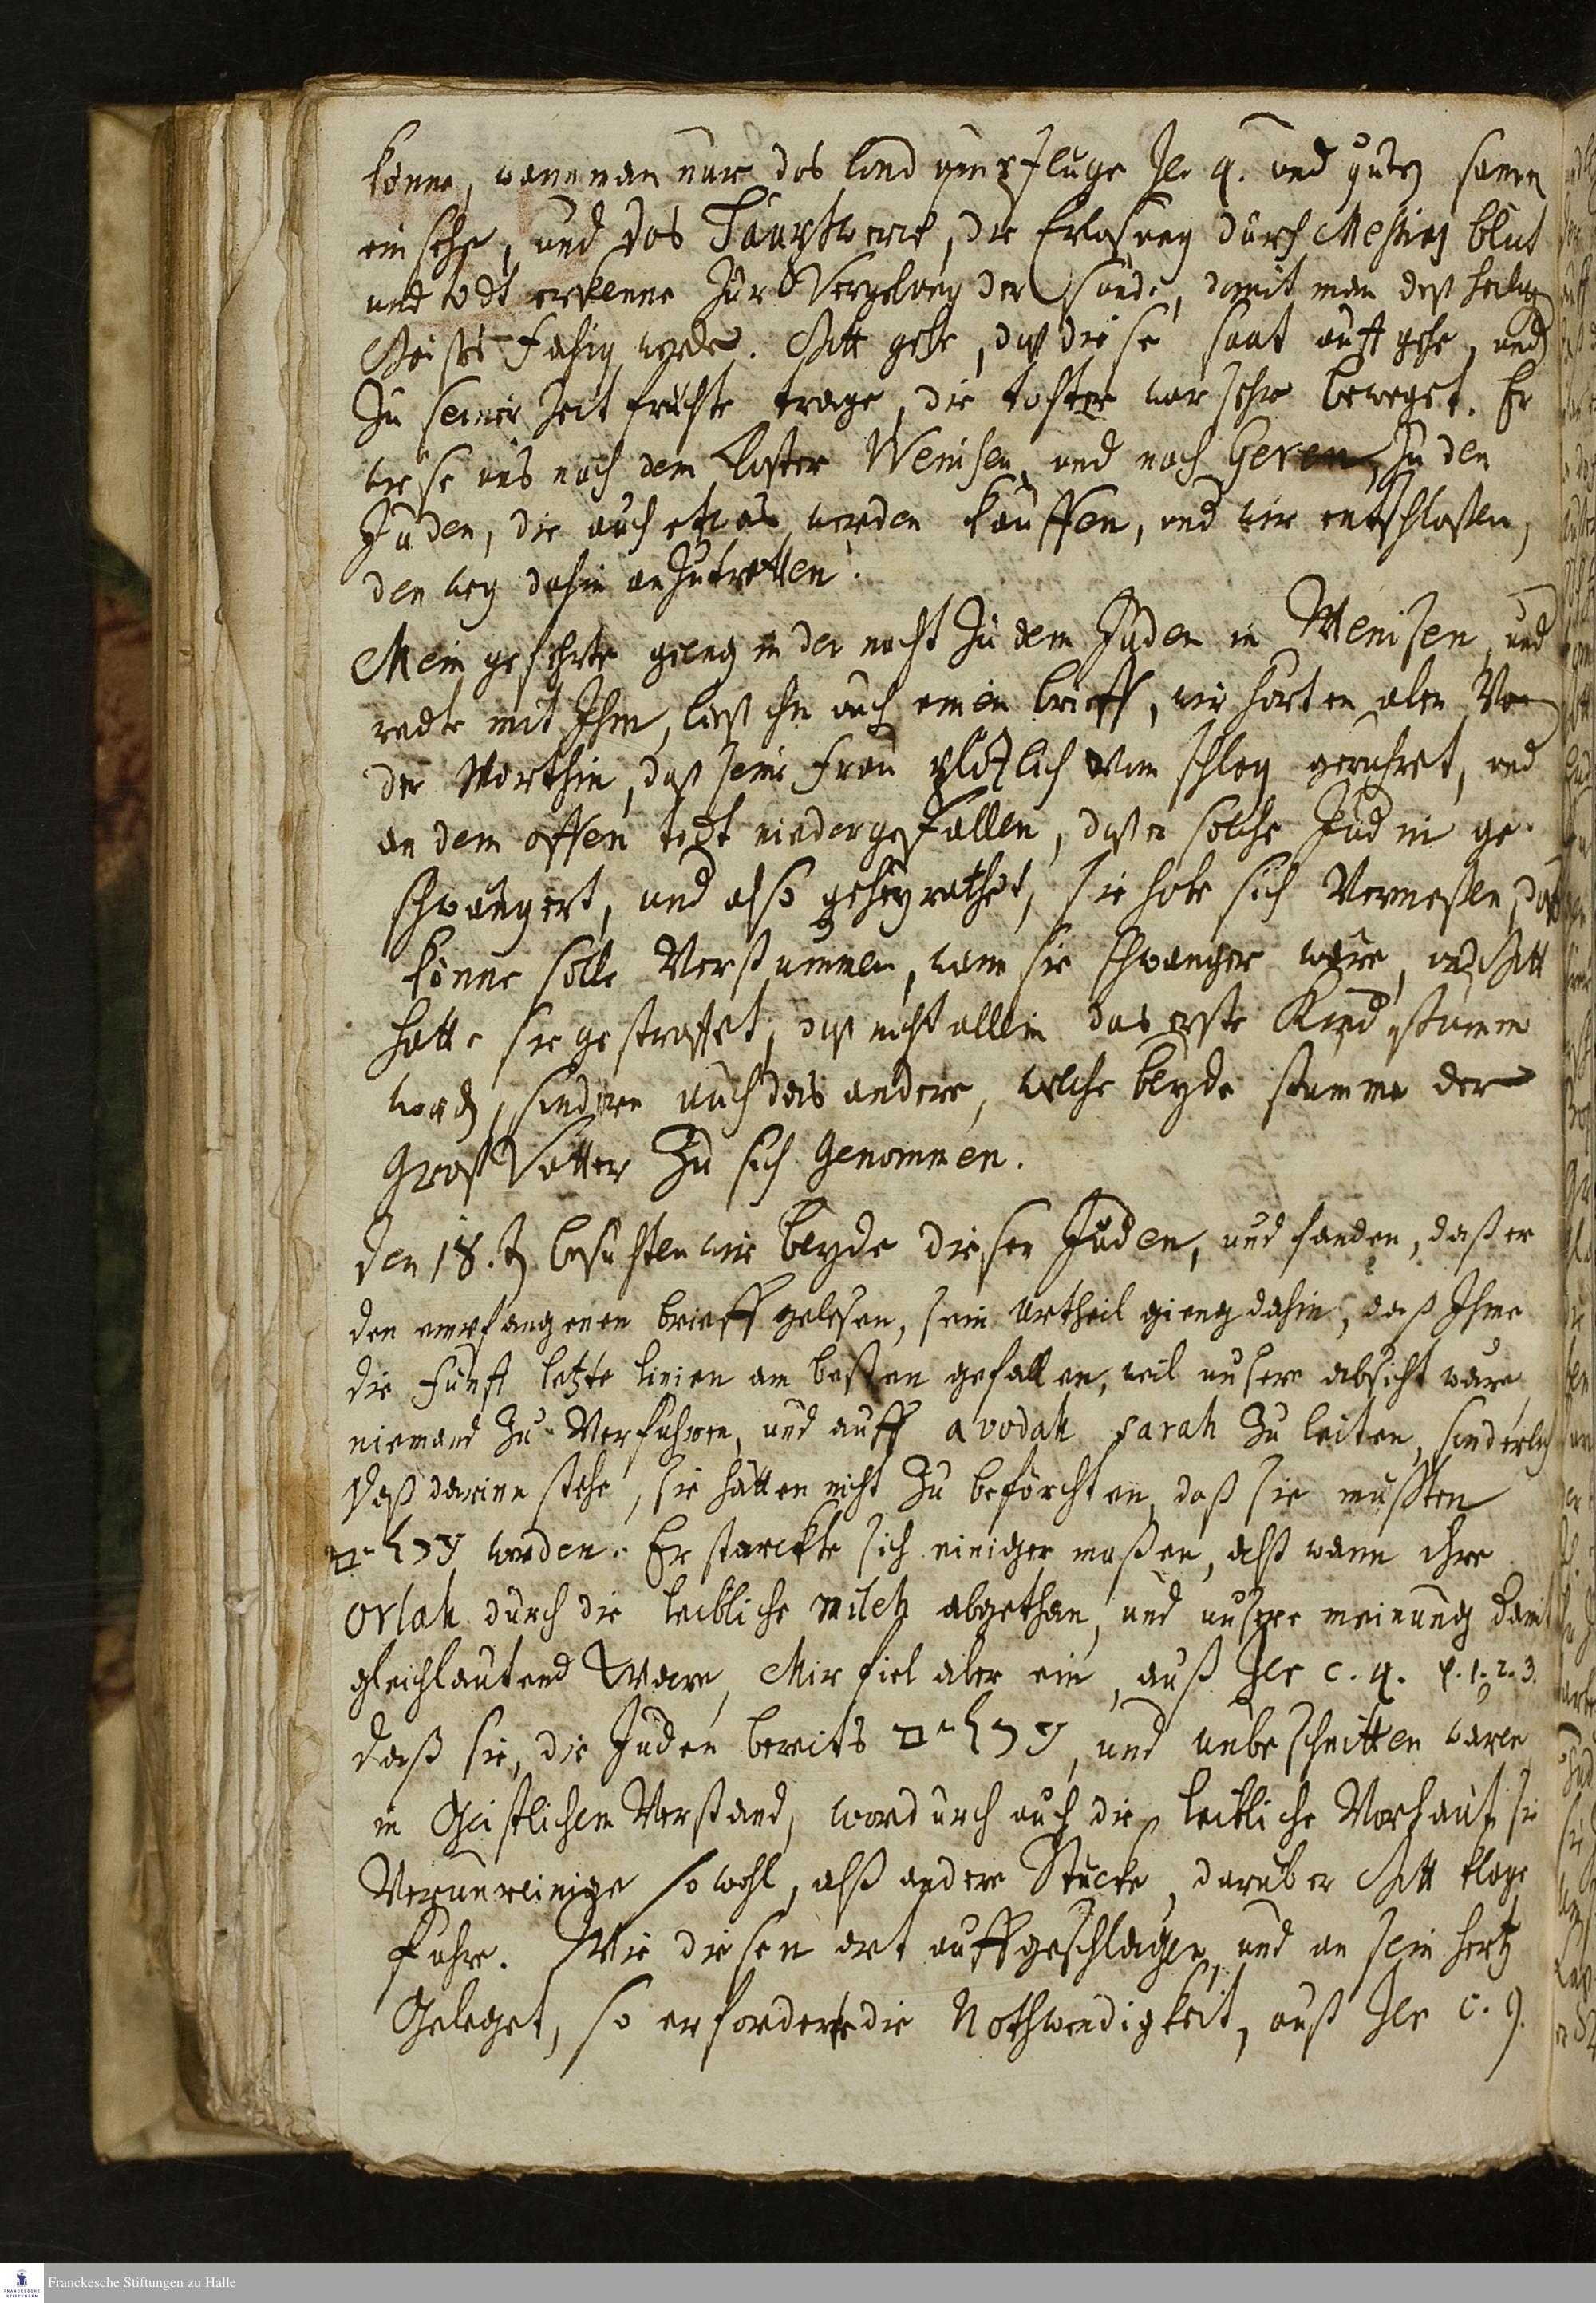 könne, wann man nur das land umpfluge Jer 4. und guten samen
einsehe, und das Hauptwerck, die Erlosung durch Messias blut
und todt erkenne zur Vergebung der sunde, damit man deß heiligen
Geistes fähig werde. Gott gebe, daß diese saat auffgehe, und
zu seiner Zeit früchte trage, die tochter war sehr beweget. Er
wiese uns nach dem Closter Wenisen, und nach Geren, zu den
Juden, die auch etwas werden kauffen, und wir entschlossen,
den weg dahin anzutretten.
Mein gefehrte gieng in der nacht zu dem Juden in Wenisen, und
redte mit Ihm, ließ ihm auch einen brieff, wir hörten aber Von
der Wirthin, daß seine frau plötzlich vom schlag gerühret, und
an dem offen todt niedergefallen, daß er solche Jüdin ge-
schwängert, und also geheyrathet, sie habe sich Vermessen, daß
könne solle Verstummen, wann sie schwanger wäre, und Gott
hatte sie gestraffet, daß nicht allein das erste Kind stumm
worden, sondern auch das andere, welche beyde stumme der
Groß Vatter zu sich genommen.
Den 18.t besuchten wir beyde diesen Juden, und fanden, daß er
den empfangenen brieff gelesen, sein Urtheil gieng dahin, daß Ihme
die fünff letzte linien am besten gefallen, weil unsere absicht wäre
niemand zu Verführen, und auff avodah sarah zu leiten, sonderlich
daß darinn stehe, sie hätten nicht zu beförchten, daß sie müßten
ערלים werden. Er starckte sich einiger maßen, alß wann ihre
orlah durch die leibliche milah abgethan, und unsere meinung damit
gleichlautend wäre, Mir fiel aber ein, auß Jer c. 4. v. 1. 2. 3.
daß sie, die Juden bereits ערלים, und unbeschnitten wären
in Geistlichem Verstand, wordurch auch die leibliche Vorhaut sie
Verunreinige sowohl, alß andere Stücke, darüber Gott klage
führe. Wie diesen ort auffgeschlagen, und an sein hertz
Geleget, so erforderte die Nothwendigkeit, auß Jer c. 9.
Franckesche Stiftungen zu Halle